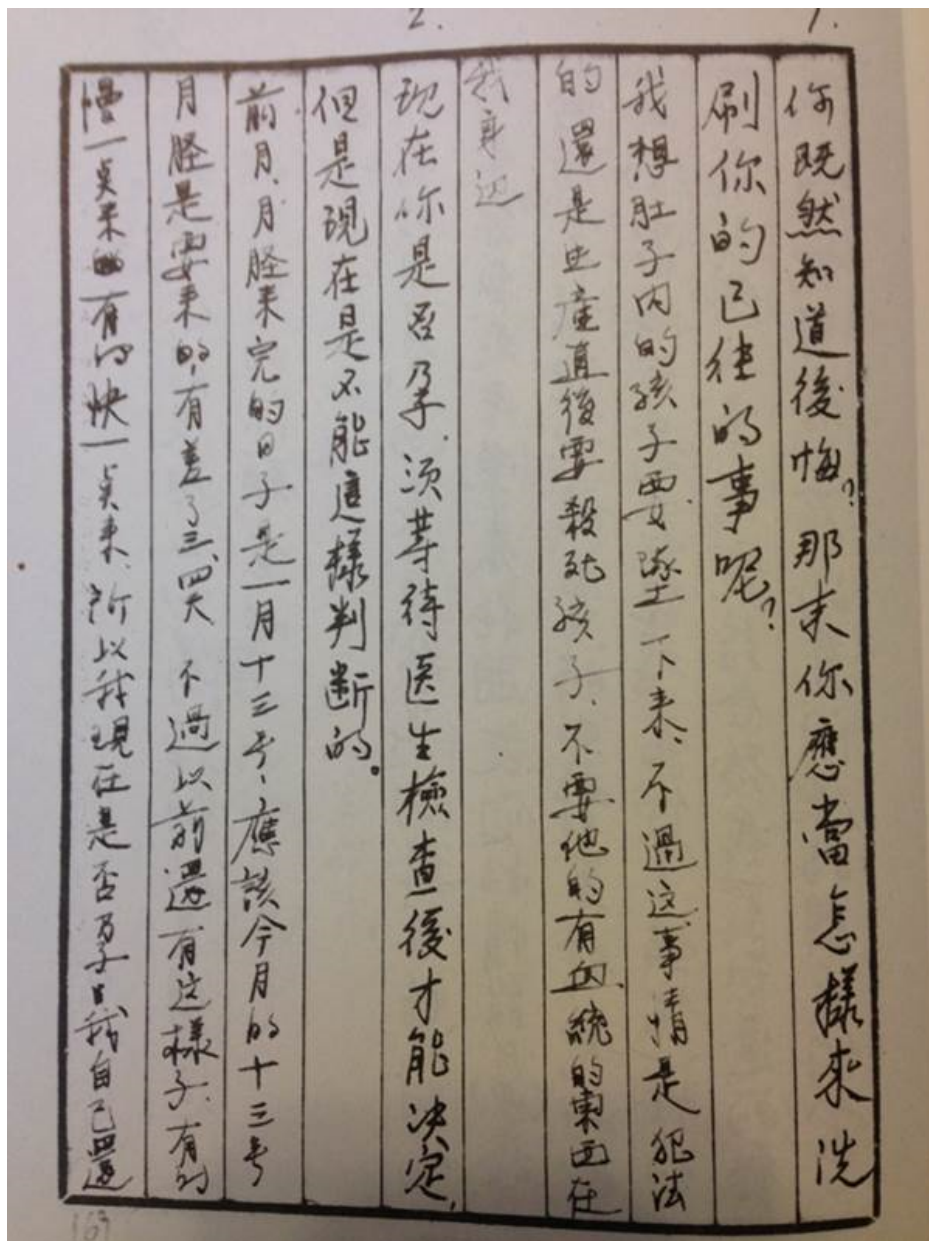 1.
2.
你既然知道後悔？那末你應當怎樣來洗
刷你的已往的事呢？
我想肚子内的孩子要墜下来、不過这事情是犯法
的還是生產直後要殺死孩子、不要他的有血統的東西在
我身边
現在你是否孕、須等待医生檢查後才能决定，
但是現在是不能這樣判断的。
前月、月胫来完的日子是一月十三号、應該今月的十三号
月胫是要来的、有差了三、四天 不過以前還有这樣子、有的
慢一点来 有的快一点来、所以我現在是否孕 我自己還
169